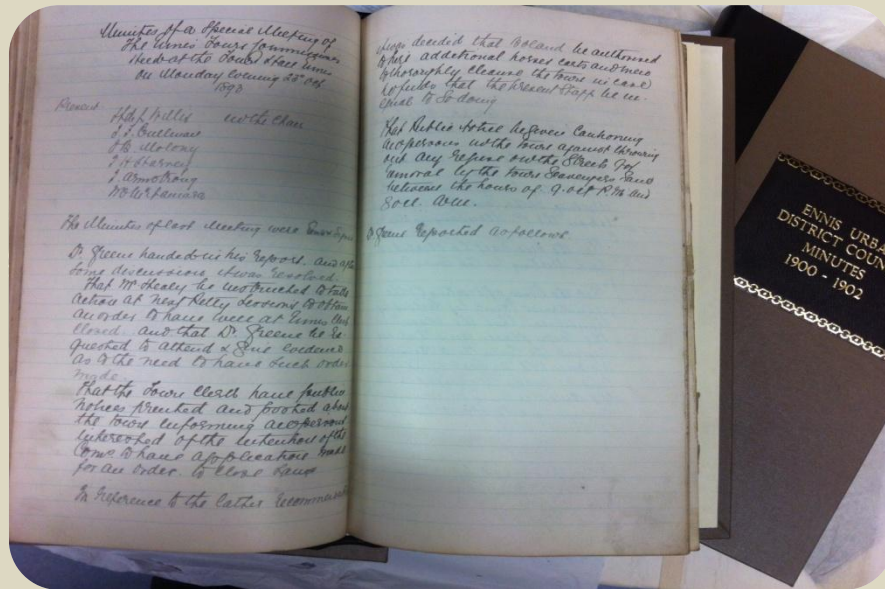 Minutes of a Special Meeting of
the Ennis Town Commissioners
held at the Town Hall Ennis
on Monday Evening 23rd Oct
1893
Present
Willis in the Chair
J. J. Cullinan
Molony
J H Harvey
J Armstrong
McNamara
The Minutes of last Meeting were
Dr. Greene handed in his Report and after
some discussion it was resolved
That Mr Healy be instructed to take
action at next Petty Sessions to obtain
an order to have well at Ennis
closed. and that Dr. Greene be re-
quested to attend & give evidence
as to the need to have such order
made
That the Town Clerk have public
notices printed and posted about
the town informing all persons
interested of the intention of the
Coms to have application made
for an order to close same
In reference to the latter
decided that Boland be authorised
to hire additional horses carts and men
to thoroughly cleanse the town in case
he finds that the present staff be un-
equal to so doing
That Public Notice be given Cautioning
all persons in the town against throwing
out any Refuse on the Streets for
removal by the town Scavengers save
between the hours of 9. oclk P.M. and
oclk. A.M.
Dr Greene Reported as follows
ENNIS URBA
DISTRICT COUN
MINUTES
1900 - 1902